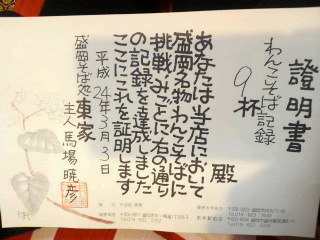 證明書
わんこそば記録
9杯
殿
あなたは当店において
盛岡名物わんこそばに
挑戦、みごとに右の通り
の記録を達成しました
ここにこれを証明します
平成24年3月3日
盛岡そば処 東家
主人 馬場暁彦